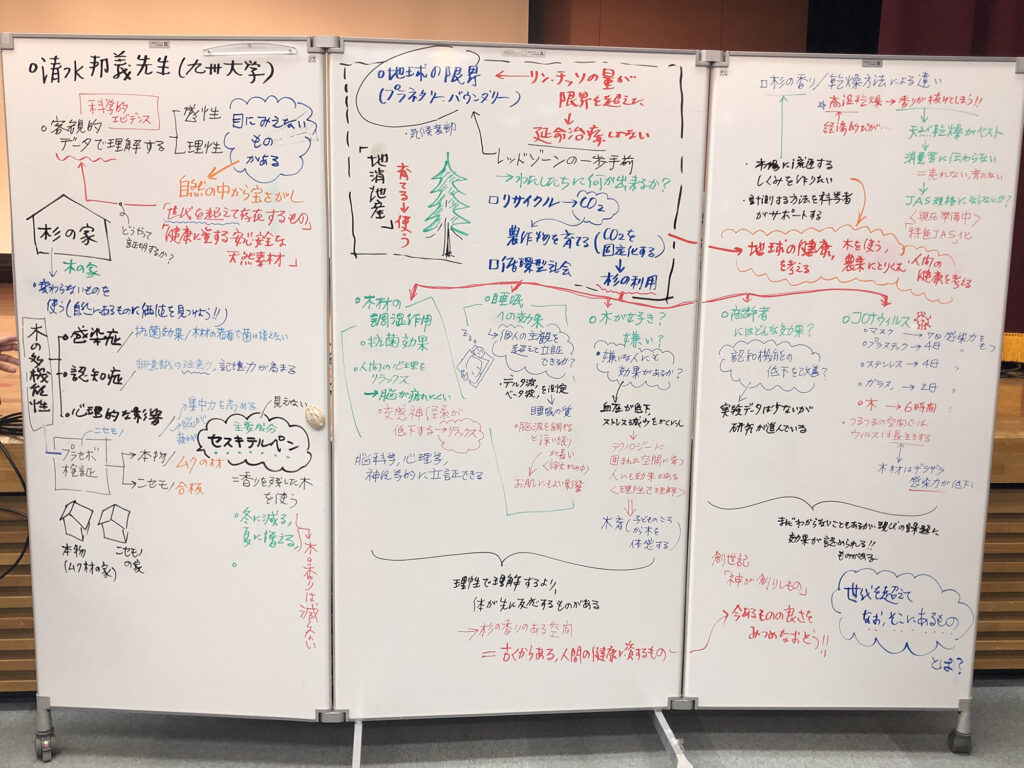 清水邦義先生(九州大学)
科学的
エビデンス
客観的
データで理解する
感性
理性
目にみえない
もの
がある
自然の中から宝さがし
「世代を超えて存在するもの」
「健康に資する安心安全な
天然素材」
どうやって
証明するか?
杉の家
木の家
変わらないものを
使う(自然にあるものに価値を見つけよう!!)
木の多機能性
感染症
抗菌効果/木材の表面で菌は増えない
認知症
無意識の注意力、記憶力が高まる
心理的な影響
集中力を高める
見えない
主要成分
セスキテルペン
ニセモノ
プラセボ
検証
本物/ムクの材
ニセモノ/合板
=香りを残した木
を使う
冬に減る,
夏に増える,
木の香りは減らない
本物
(ムク材の家)
ニセモノ
の家
地球の限界
(プラネタリーバウンダリー)
リン・チッソの量が
限界を超えた
→延命治療しかない
気候変動
レッドゾーンの一歩手前
→わたしたちに何が出来るか?
「地消地産」
育てる→使う
リサイクル
CO2
農作物を育て(CO2を
固定化する)
循環型社会
杉の利用
木材の
調湿作用
抗菌効果
人間の心理を
リラックス
→脳が疲れにくい
交感神経系が
低下する→リラックス
脳科学,心理学,
神経学的に立証できる
睡眠
への効果
個人の主観を
超えて立証
できるか?
デルタ波,
ベータ波,を測定
睡眠の質
脳波を調べると
深い眠り
が長い
お肌にもよい影響
木が好き?
嫌い?
嫌いな人にも
効果があるか?
血圧が低下,
ストレス減少をかくにん
テクノロジーに
囲まれた空間に育つ
人にも効果がある
<理性で理解>
木育(子どものころ
から木を
体感する)
理性で理解するより,
体が先に反応するものがある
→杉の香りのある空間
=古くからある,人間の健康に資するもの
杉の香り/乾燥方法による違い
高温乾燥→香りが抜けてしまう!!
経済的だが…
天然乾燥がベスト
消費者に伝わらない
=売れない,育たない
JAS規格にならないか?
<現在準備中>
「特色JAS化」
・市場に流通する
しくみを作りたい
・計測する方法を科学者
がサポートする
地球の健康,
を考える
木を使う,
農業にとりくむ
人間の
健康を考える
高齢者
にはどんな効果?
認知機能の
低下を改善?
実験データは少ないが
研究が進んでいる
コロナウィルス
・マスク→7日 感染力をもつ
・プラスチック→4日 〃
・ステンレス→4日 〃
・ガラス,→2日 〃
・木→6時間
・つるつるの空間では
ウィルスは長生きする
木材はザラザラ
感染力が低下
まだわからないこともあるが…現代の課題に
効果が認められる!!
ものがある
創世記
「神が創りしもの」
→今あるものの良さを
みつめなおそう!!
世代を超えて
なお,そこにあるもの
とは?